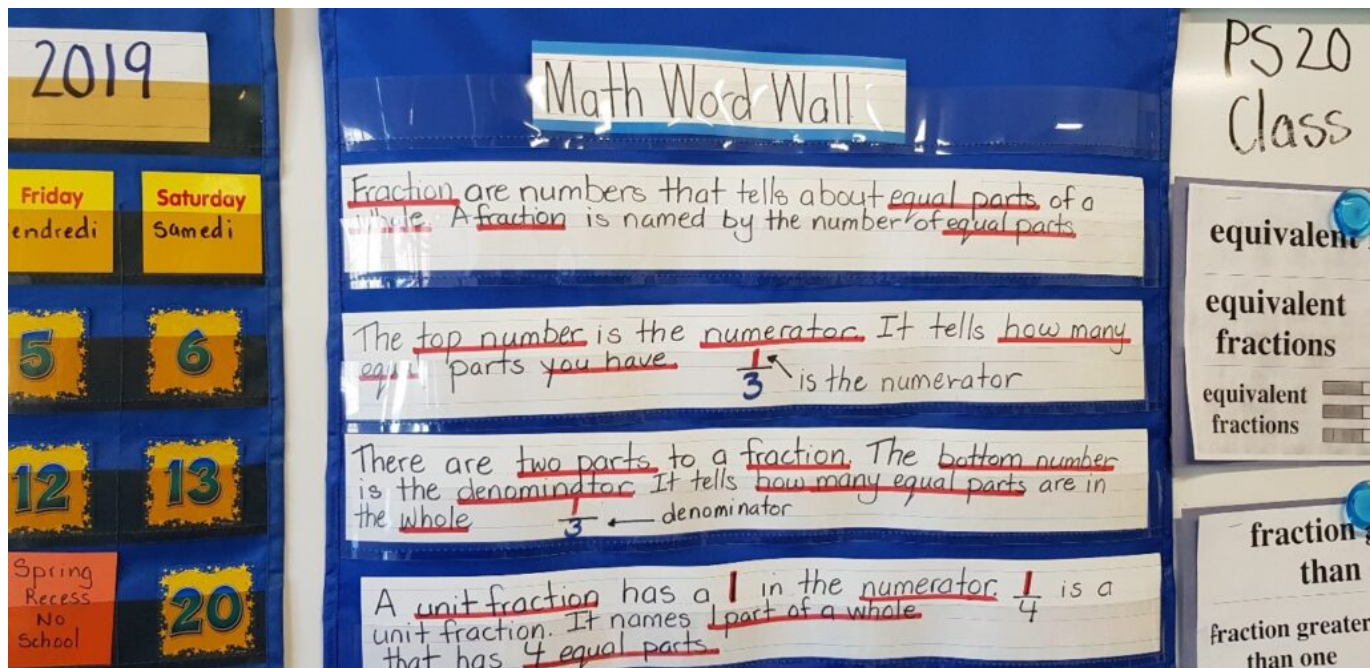 2019
Friday
endredi
Saturday
Samedi
5
6
12
13
Spring
Recess
No
School
20
Math Word Wall
Fraction are numbers that tells about equal parts of a
whole. A fraction is named by the number of equal parts
The top number is the numerator. It tells how many
equ parts you have.
1/3
is the numerator
There are two parts to a fraction. The bottom number
is the denominator It tells how many equal parts are in
the whole
1/3
denominator
A unit fraction has a 1 in the numerator. 1/4 is a
unit fraction. It names 1 part of a whole
that has 4 equal parts.
PS 20
Class
equivalent
equivalent
fractions
equivalent
fractions
fraction
than
fraction greater
than one